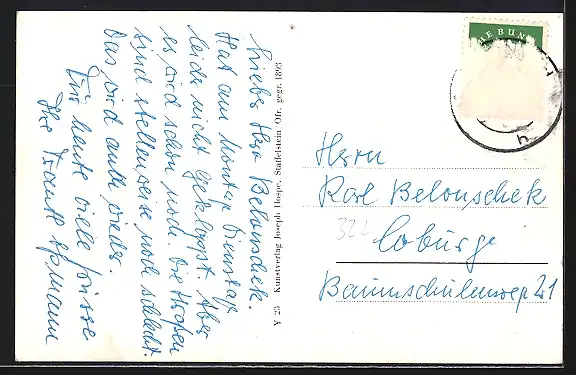 Lieber Herr Belonschek.
Hat am Montag Dienstag
leider nicht geklappt. Aber
es wird schon noch. Die Straßen
sind stellenweise noch schlecht.
Das wird auch wieder.
Für heute viele Grüsse
Ihr
Y 23 Kunstverlag Joseph Hospe, Staffelstein Ofr. gegr. 1893
HE BUN
Herrn
Karl Belonschek
322
Coburg
Baumschulenweg 21
h